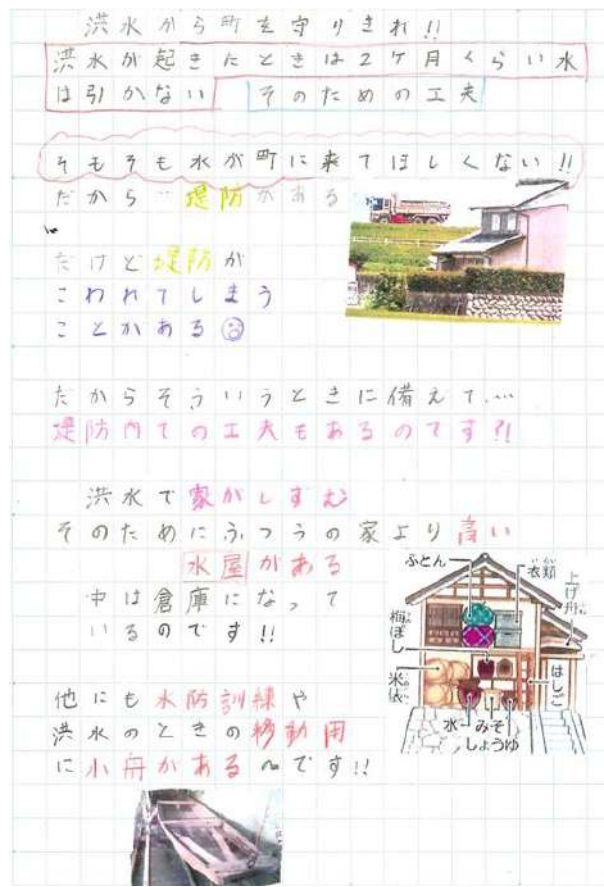 洪水から町を守りきれ!!
洪水が起きたときは2ケ月くらい水
は引かない そのための工夫
そもそも水が町に来てほしくない!!
だから…堤防がある
だけど堤防が
こわれてしまう
ことがある
だからそういうときに備えて….
堤防内での工夫もあるのです?!
洪水で家がしずむ
そのためにふつうの家より高い
水屋がある
中は倉庫になって
いるのです!!
ふとん
衣類
いるい
上げ舟
梅ぼし
米俵
はしご
水
みそ
しょうゆ
他にも水防訓練や
洪水のときの移動用
に小舟がある〜です!!